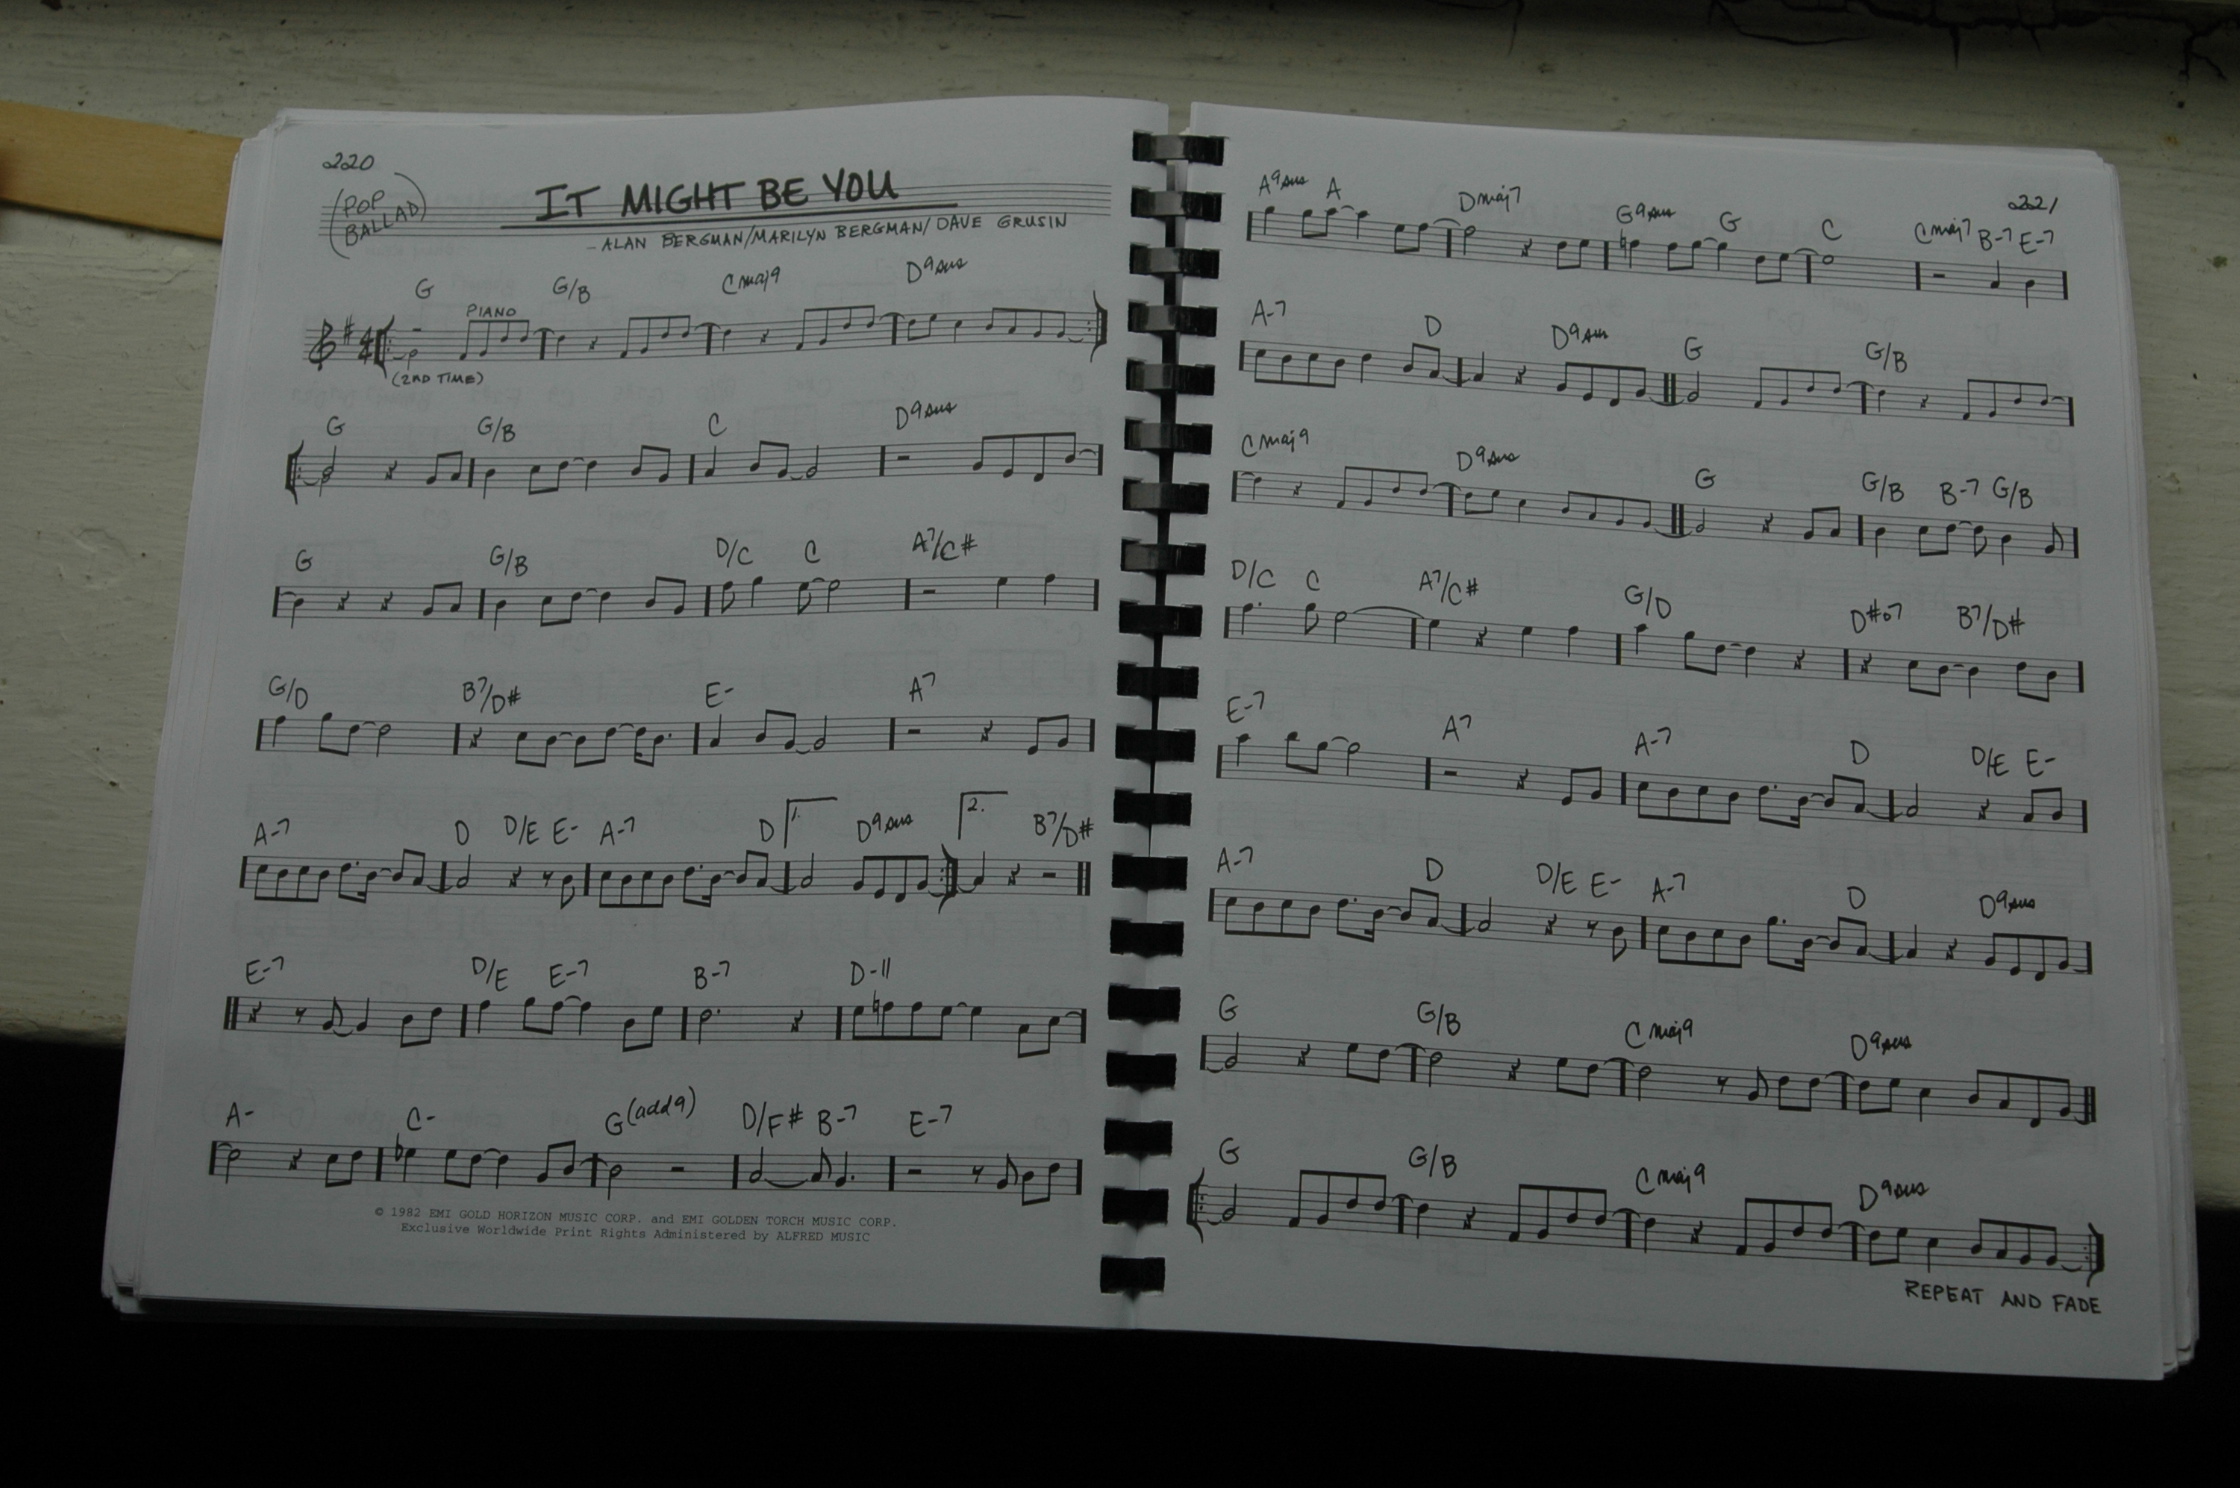 220
(POP
BALLAD)
IT MIGHT BE YOU
- ALAN BERGMAN/MARILYN BERGMAN/DAVE GRUSIN
G G/B Cmaj9 D9sus
PIANO
(2ND TIME)
G G/B C D9sus
G G/B D/C C A7/C#
G/D B7/D# E- A7
A-7 D D/E E- A-7 D 1. D9sus 2. B7/D#
E-7 D/E E-7 B-7 D-11
A- C- G(add9) D/F# B-7 E-7
© 1982 EMI GOLD HORIZON MUSIC CORP. and EMI GOLDEN TORCH MUSIC CORP.
Exclusive Worldwide Print Rights Administered by ALFRED MUSIC
221
A9sus A Dmaj7 G9sus G C Cmaj7 B-7 E-7
A-7 D D9sus G G/B
Cmaj9 D9sus G G/B B-7 G/B
D/C C A7/C# G/D D#o7 B7/D#
E-7 A7 A-7 D D/E E-
A-7 D D/E E- A-7 D D9sus
G G/B Cmaj9 D9sus
G G/B Cmaj9 D9sus
REPEAT AND FADE